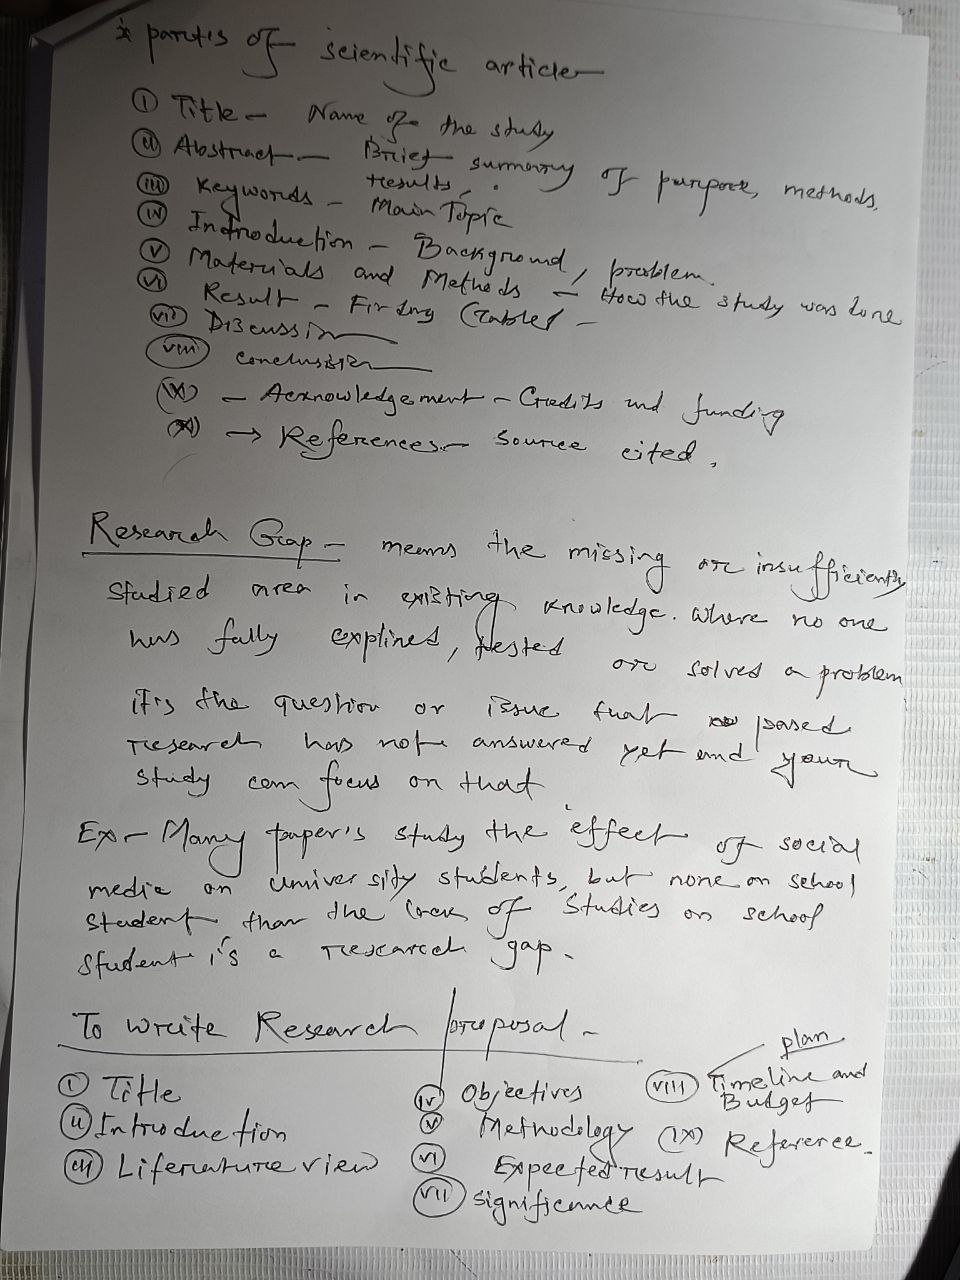 * parts of scientific article
(i) Title - Name of the study
(ii) Abstract - Brief summary of purpose, methods,
results,
(iii) Keywords - Main Topic
(iv) Introduction - Background, problem
(v) Materials and Methods - How the study was done
(vi) Result - Finding (Tables -
(vii) Discussion
(viii) conclusion
(ix) - Acknowledgement - Credits and funding
(x) → References - Source cited.
Research Gap - means the missing or insufficiently
studied area in existing knowledge. Where no one
has fully explined, tested or solved a problem
it's the question or issue that pased
research has not answered yet and your
study can focus on that
Ex - Many paper's study the effect of social
media on university students, but none on school
student than the lack of Studies on school
student is a research gap.
To write Research proposal -
(i) Title
(ii) Introduction
(iii) Literature view
(iv) Objectives
(v) Methodology
(vi) Expected result
(vii) significance
plan
(viii) Timeline and
Budget
(ix) Reference.